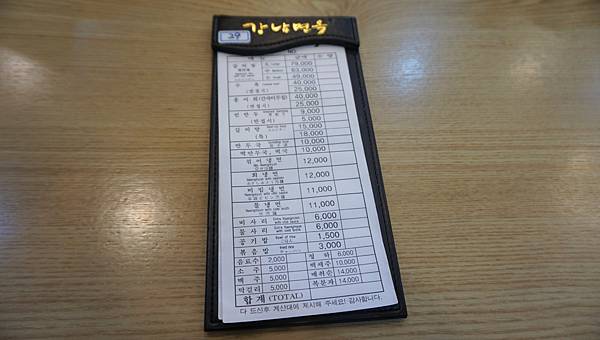 강남면옥
29
NO
79,000
63,000
49,000
수 육 40,000
(반접시) 25,000
홍어회(간자미무침) 40,000
(반접시) 25,000
찐만두 9,000
(반접시) 5,000
갈비탕 15,000
(특) 18,000
만두국 10,000
떡만두국, 떡국 10,000
섞어냉면 12,000
회냉면 12,000
비빔냉면 11,000
물냉면 11,000
비사리 6,000
물사리 6,000
공기밥 Bowl of rice 1,500
볶음밥 3,000
음료수 2,000 청하 6,000
소주 5,000 백세주 10,000
맥주 5,000 매취순 14,000
막걸리 5,000 복분자 14,000
합계 (TOTAL)
다 드신후 계산대에 제시해 주세요! 감사합니다.